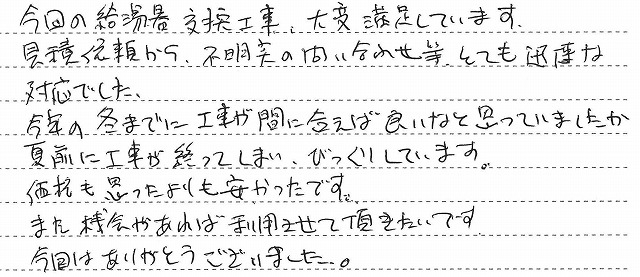 今回の給湯器交換工事、大変満足しています。
見積依頼から、不明点の問い合わせ等、とても迅速な
対応でした。
今年の冬までに工事が間に合えば良いなと思っていましたが
夏前に工事が終ってしまい、びっくりしています。
価格も思ったよりも安かったです。
また機会があれば利用させて頂きたいです
今回はありがとうございました。